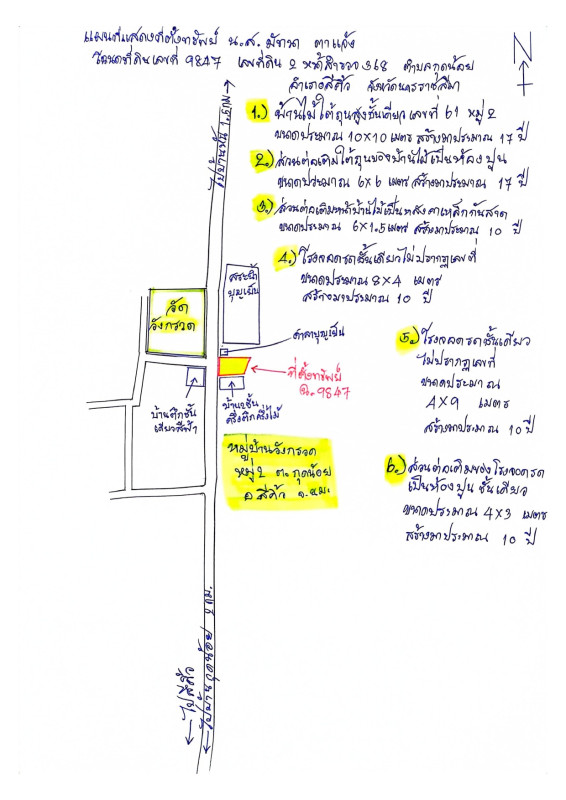 แผนที่แสดงที่ตั้งทรัพย์ น.ส. มัทวา ตาแจ้ง
โฉนดที่ดินเลขที่ 9847 เลขที่ดิน 2 หน้าสำรวจ 368 ตำบลกุดน้อย
อำเภอสีคิ้ว จังหวัดนครราชสีมา
N
1.) บ้านไม้ใต้ถุนสูงชั้นเดียว เลขที่ 61 หมู่ 2
ขนาดประมาณ 10x10 เมตร สร้างมาประมาณ 17 ปี
2.) ส่วนต่อเติมใต้ถุนของบ้านไม้เป็นห้องปูน
ขนาดประมาณ 6x6 เมตร สร้างมาประมาณ 17 ปี
3.) ส่วนต่อเติมหน้าบ้านไม้เป็นหลังคาเหล็กกันสาด
ขนาดประมาณ 6x1.5 เมตร สร้างมาประมาณ 10 ปี
4.) โรงจอดรถชั้นเดียวไม่ปรากฏเลขที่
ขนาดประมาณ 8x4 เมตร
สร้างมาประมาณ 10 ปี
สระน้ำ
บุญเย็น
วัด
วังกรวด
ศาลาบุญเย็น
ที่ตั้งทรัพย์
ฉ.9847
บ้านตึกชั้น
เดียวสีฟ้า
บ้าน2ชั้น
ครึ่งตึกครึ่งไม้
5.) โรงจอดรถชั้นเดียว
ไม่ปรากฏเลขที่
ขนาดประมาณ
4x9 เมตร
สร้างมาประมาณ 10 ปี
หมู่บ้านวังกรวด
หมู่ 2 ต.กุดน้อย
อ.สีคิ้ว จ.นม.
6.) ส่วนต่อเติมของโรงจอดรถ
เป็นห้องปูนชั้นเดียว
ขนาดประมาณ 4x3 เมตร
สร้างมาประมาณ 10 ปี
ไปสีคิ้ว
ไปบ้านกุดน้อย